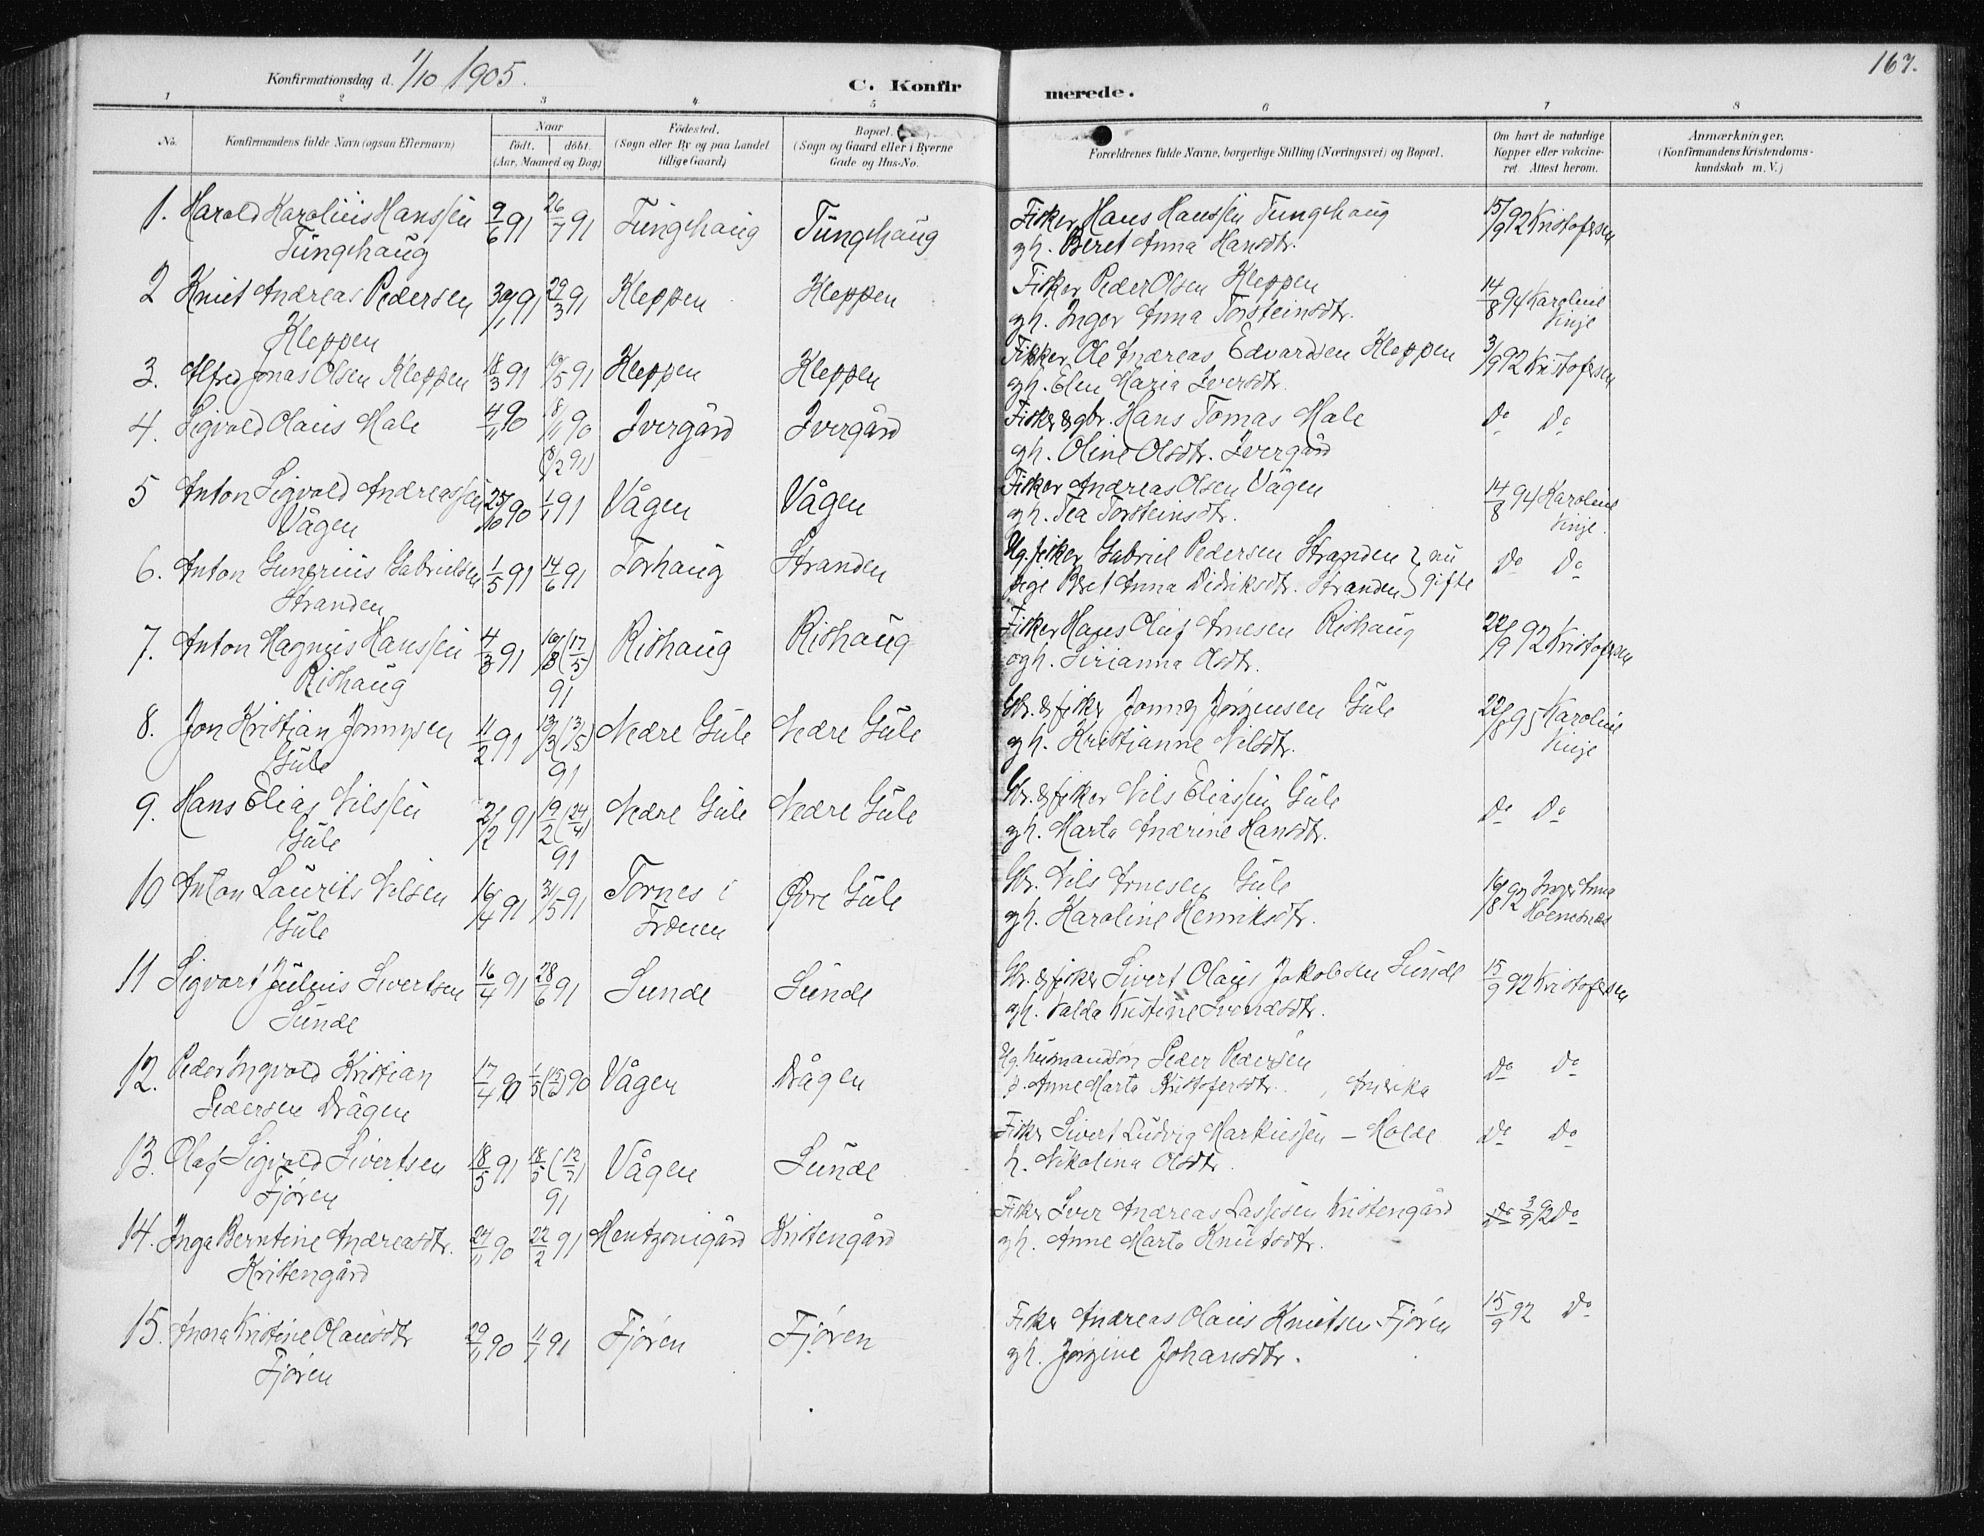 167.
Konfirmationsdag d. 1/10 1905.
C. Konfirmerede.
1 2 3 4 5 6 7 8
No. Konfirmandens fulde Navn (ogsaa Efternavn) Naar født. døbt. (Aar, Maaned og Dag) Fødested. (Sogn eller By og paa Landet tillige Gaard) Bopæl. (Sogn og Gaard eller i Byerne Gade og Hus-No. Forældrenes fulde Navne, borgerlige Stilling (Næringsvei) og Bopæl. Om havt de naturlige Kopper eller vakcineret. Attest herom. Anmærkninger, (Konfirmandens Kristendomskundskab m. V.)
1. Harald Karolius Hanssen 9/6 91 26/7 91 Tunghaug Tunghaug Fisker Hans Hanssen Tunghaug 15/9 92 Kristofersen
Tunghaug gh. Beret Anna Hansdtr.
2 Knut Andreas Pedersen 30/1 91 29/3 91 Kleppen Kleppen Fisker Peder Olsen Kleppen 14/8 94 Karoline
Kleppen gh. Inger Anna Torsteinsdtr. Vinje
3. Alfred Jonas Olsen Kleppen 18/3 91 10/5 91 Kleppen Kleppen Fisker Ole Andreas Edvardsen Kleppen 3/9 92 Kristofersen
gh. Elen Maria Iversdtr.
4. Sigvald Olaus Male 4/11 90 18/11 90 Ivergård Ivergård Fisker & gbr. Hans Tomas Male Do Do
(8/2 91) gh. Oline Olsdtr. Ivergård
5 Anton Sigvald Andreassen 25/10 90 1/1 91 Vågen Vågen Fisker Andreas Olsen Vågen 14/8 94 Karoline
Vågen gh. Tea Torsteinsdtr. Vinje.
6. Anton Gunerius Gabrielsen 1/5 91 14/6 91 Torhaug Stranden Ug. fisker Gabriel Pedersen Stranden } nu Do Do
Stranden pige Beret Anna Didriksdtr. Stranden } gifte
7. Anton Magnus Hanssen 4/3 91 10/3 (17/5) Rishaug Rishaug Fisker Hans Oluf Arnesen Rishaug 22/9 92 Kristofersen
Rishaug 91 ogh. Sirianna Olsdtr.
8. Jon Kristian Jonnysen 11/2 91 13/3 (3/5) Nedre Gule Nedre Gule Gbr. & fisker Jonny Jørgensen Gule 22/8 95 Karoline
Gule 91 gh. Kristianne Nilsdtr. Vinje
9. Hans Elias Nilssen 2/2 91 19/2 (24/4) Nedre Gule Nedre Gule Gbr. & fisker Nils Eliassen Gule Do Do
Gule 91 gh. Marta Andrine Hansdtr.
10 Anton Laurits Nilsen 16/4 91 3/5 91 Tornes i Øvre Gule Gbr. Nils Arnesen Gule 16/8 92 Inger Anna
Gule Frænen gh. Karoline Henriksdtr.
11 Sigvart Julius Sivertsen 16/4 91 28/6 91 Sunde Sunde Gbr. & fisker Sivert Olaus Jakobsen Sunde 15/9 92 Kristofersen
Sunde gh. Valda Kristine Svendsdtr.
12. Peder Ingvald Kristian 17/4 90 1/5 (15/6) 90 Vågen Drågen Ug. husmandsøn Peder Pedersen Do Do
Pedersen Drågen p. Anne Marta Kristofersdtr., Amerika
13. Olaf Sigvald Sivertsen 18/5 91 18/5 (12/7) Vågen Sunde Fisker Sivert Ludvig Markussen – Molde Do Do
Fjøren 91 h. Nikolina Olsdtr.
14. Inga Berntine Andreasdtr. 24/11 90 22/2 91 Mentzonigård Kristengård Fisker Iver Andreas Lassesen Kristengård 3/9 92 Do
Kristengård gh. Anne Marta Knutsdtr.
15. Anna Kristine Olausdtr 29/11 90 1/1 91 Fjøren Fjøren Fisker Andreas Olaus Knutsen Fjøren 15/9 92 Do
Fjøren gh. Jørgine Johansdtr.